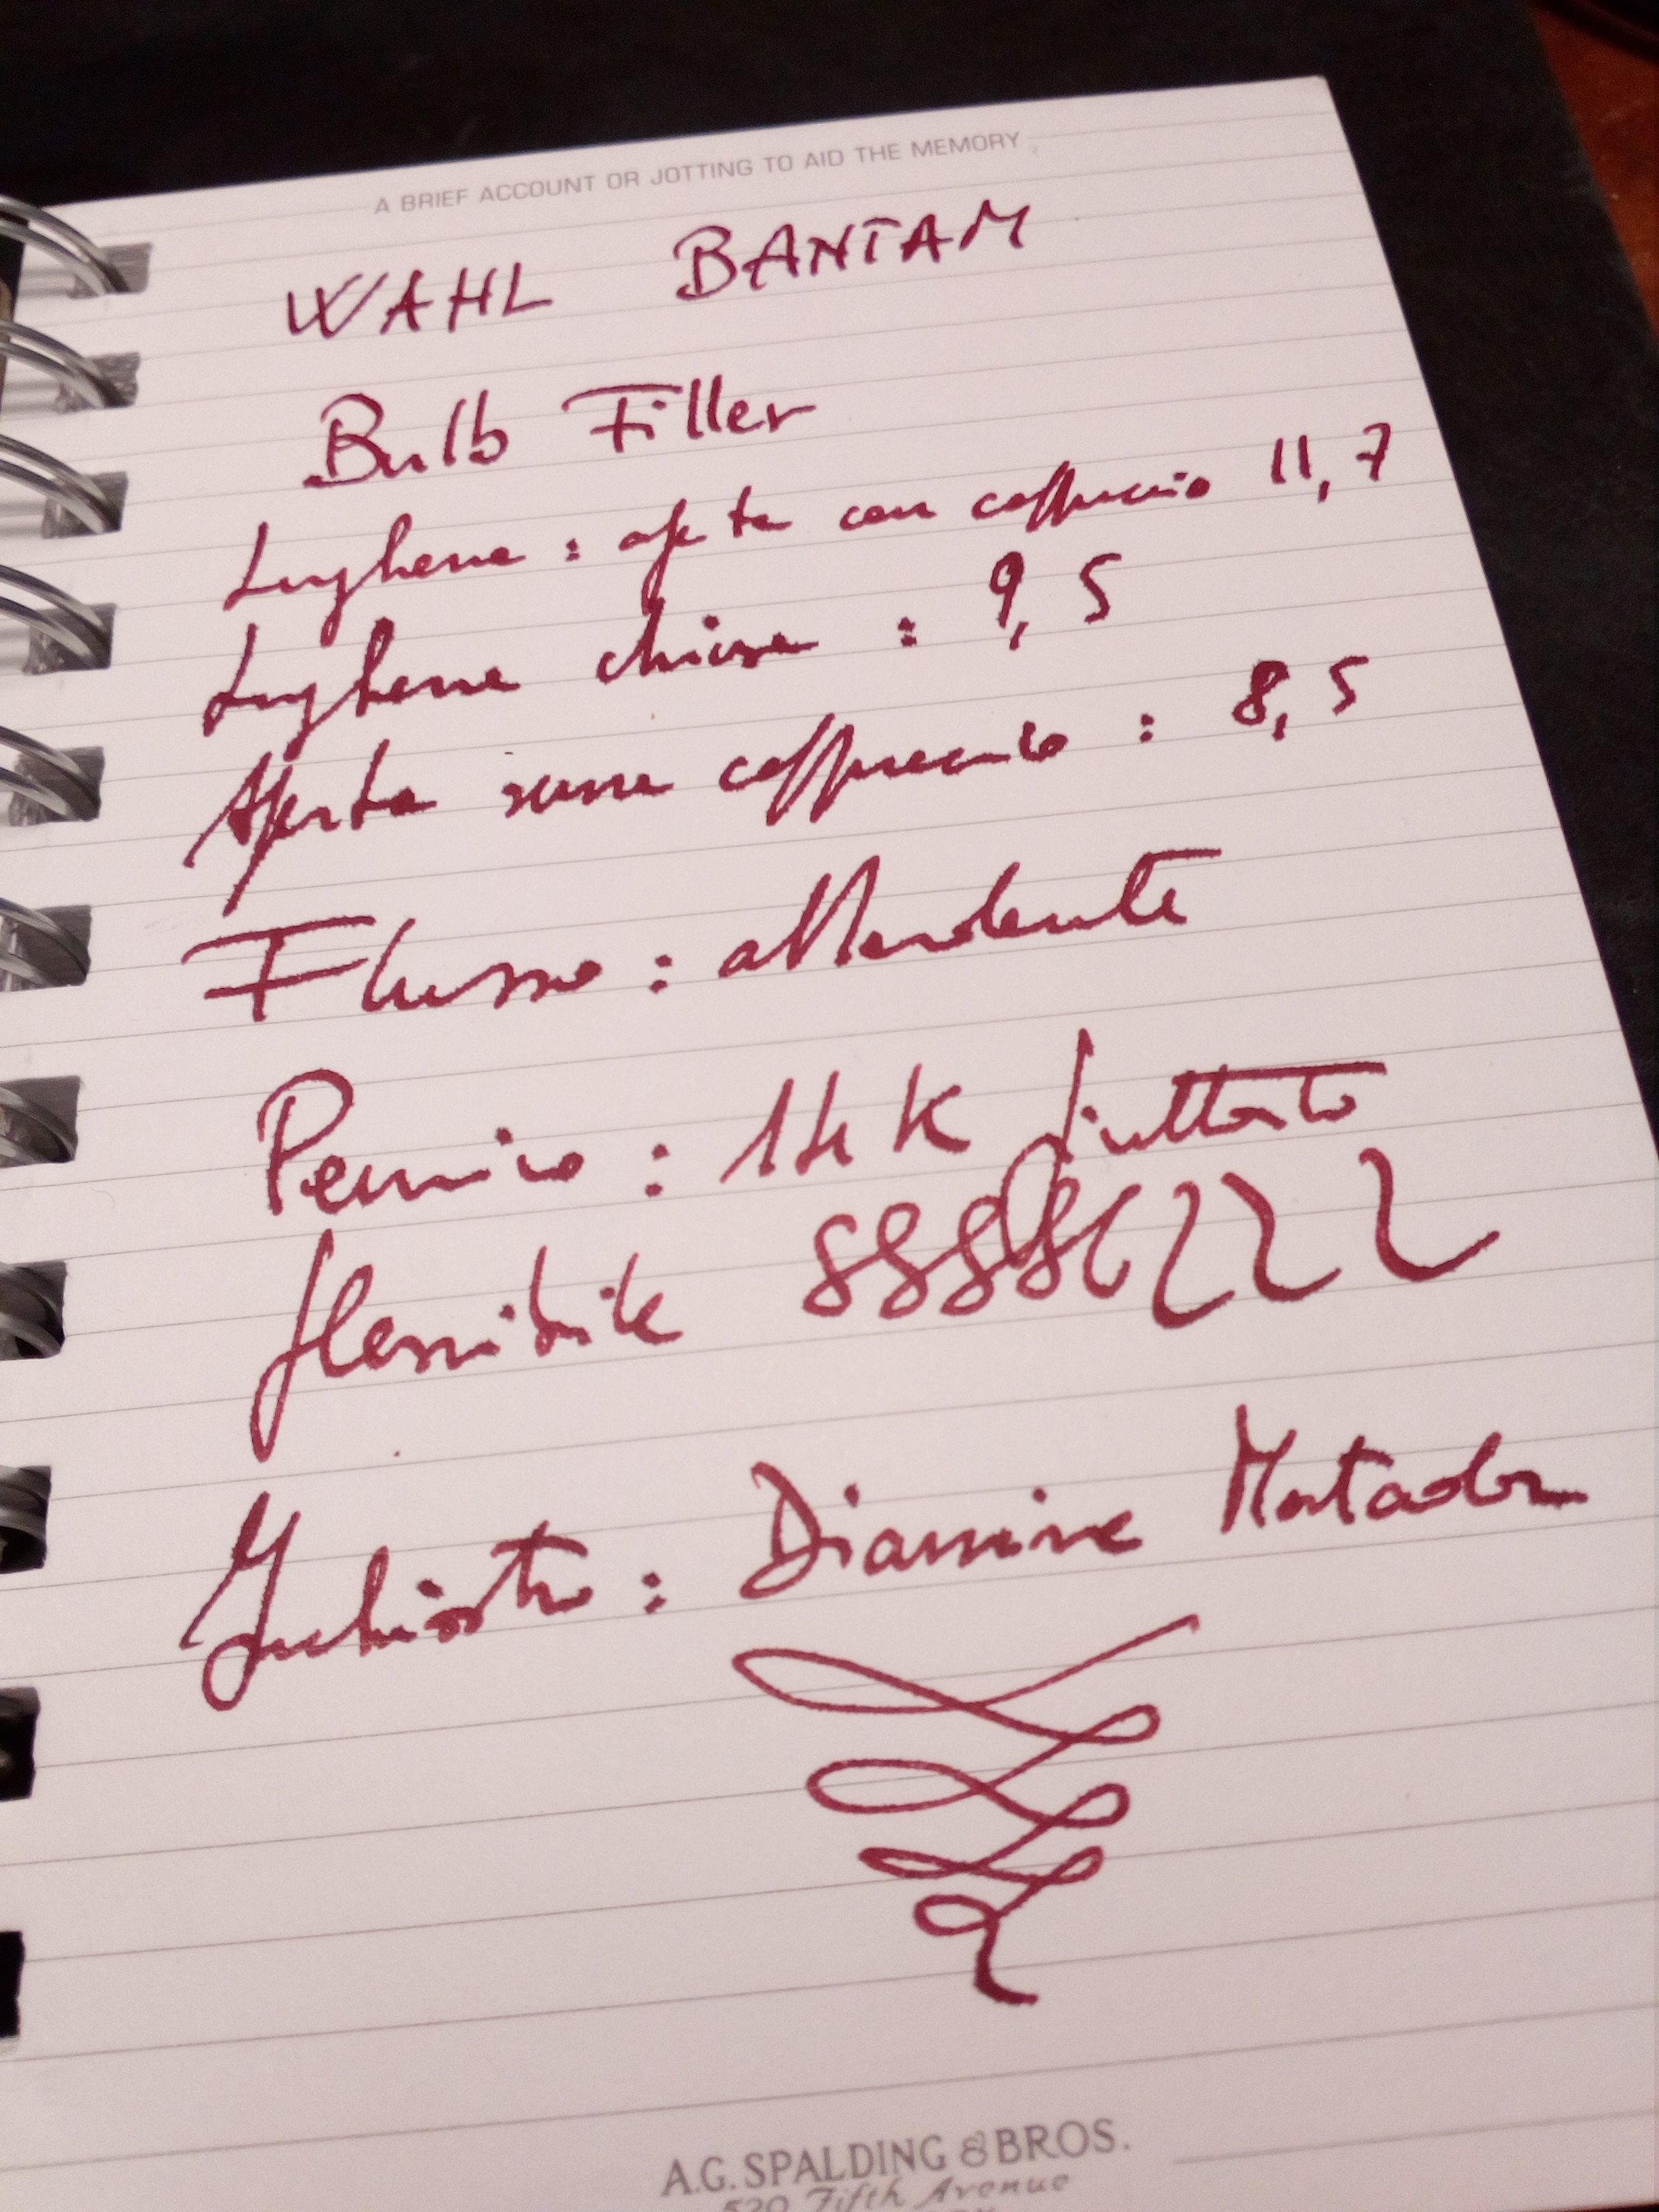 A BRIEF ACCOUNT OR JOTTING TO AID THE MEMORY
WAHL BANTAM
Bulb Filler
Lunghezza : aperta con cappuccio 11,7
Lunghezza chiusa : 9,5
Aperta senza cappuccio : 8,5
Flusso : abbondante
Pennino : 14 K
flessibile 8888
Inchiostro : Diamine Matador
A.G. SPALDING & BROS.
520 Fifth Avenue